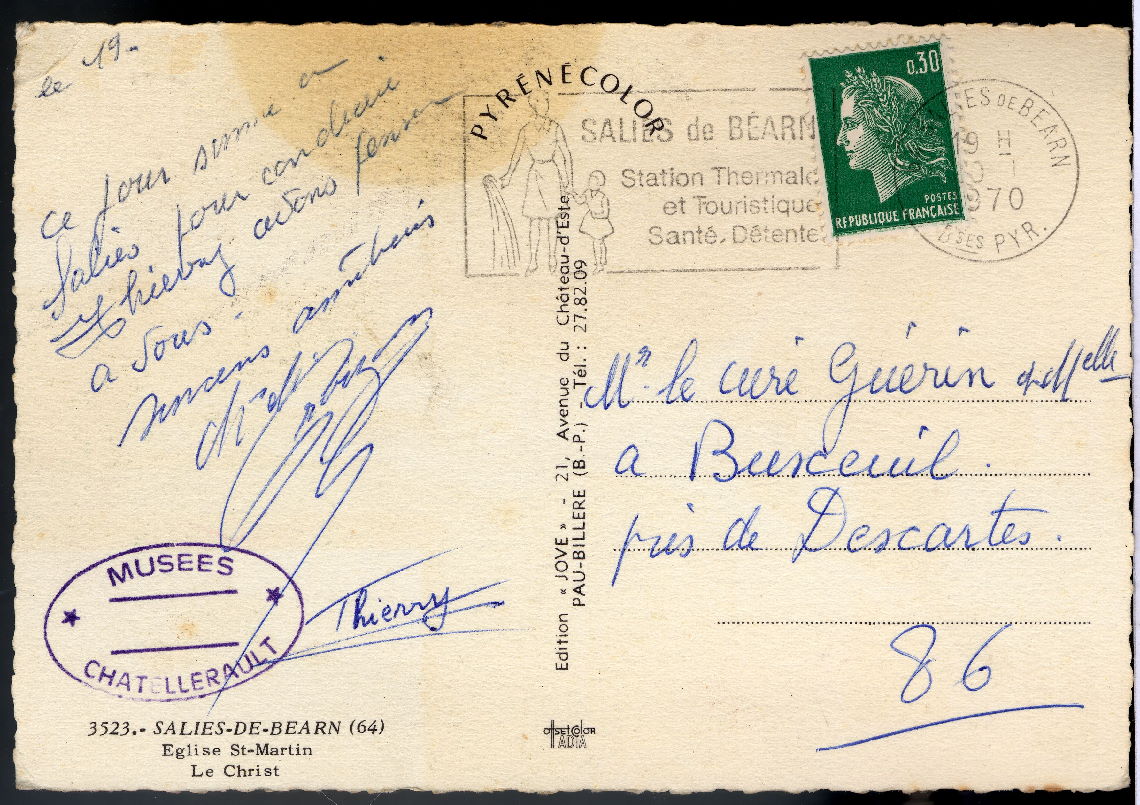 le 19.
ce jour sommes a
Salies pour conduire
Thierry avons penser
a vous.
amitiés
Thierry
MUSEES
CHATELLERAULT
3523.- SALIES-DE-BEARN (64)
Eglise St-Martin
Le Christ
PYRÉNÉCOLOR
Edition « JOVE » - 21, Avenue du Château-d'Este
PAU-BILLERE (B.-P.) - Tél. : 27.82.09
offsetcolor
IADIA
SALIES de BÉARN
Station Thermale
et Touristique
Santé. Détente
0.30
POSTES
REPUBLIQUE FRANÇAISE
SALIES DE BEARN
19 H
1970
BSES PYR.
Mr. le curé Guérin et Melle
a Buxeuil.
près de Descartes.
86